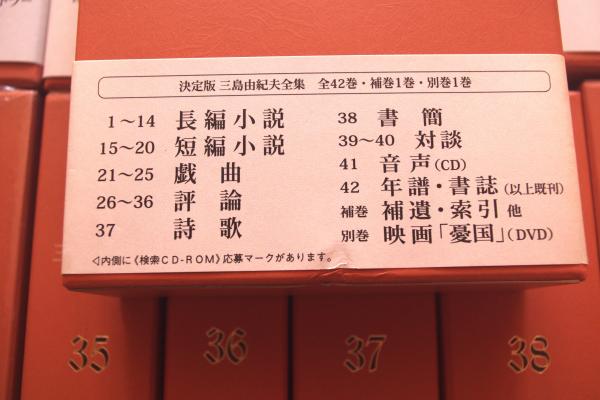 決定版 三島由紀夫全集 全42巻・補巻1巻・別巻1巻
1〜14 長編小説
15〜20 短編小説
21〜25 戯曲
26〜36 評論
37 詩歌
38 書簡
39〜40 対談
41 音声(CD)
42 年譜・書誌(以上既刊)
補巻 補遺・索引 他
別巻 映画「憂国」(DVD)
◁内側に《検索CD-ROM》応募マークがあります。
35
36
37
38